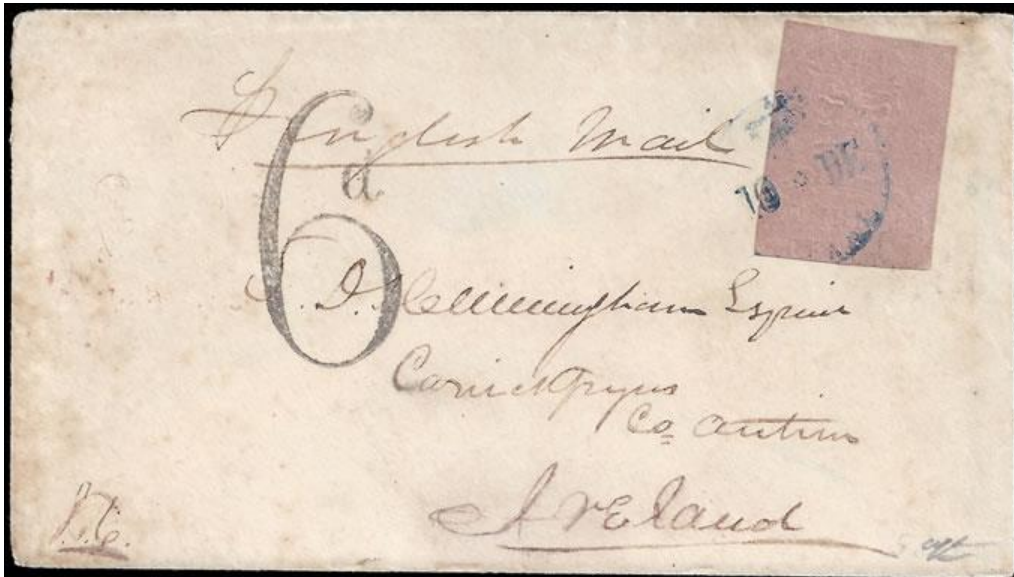 P English Mail
6d
J. D. Cunningham Esquire
Carrickfergus
Co Antrim
Ireland
10 DE
J. C.